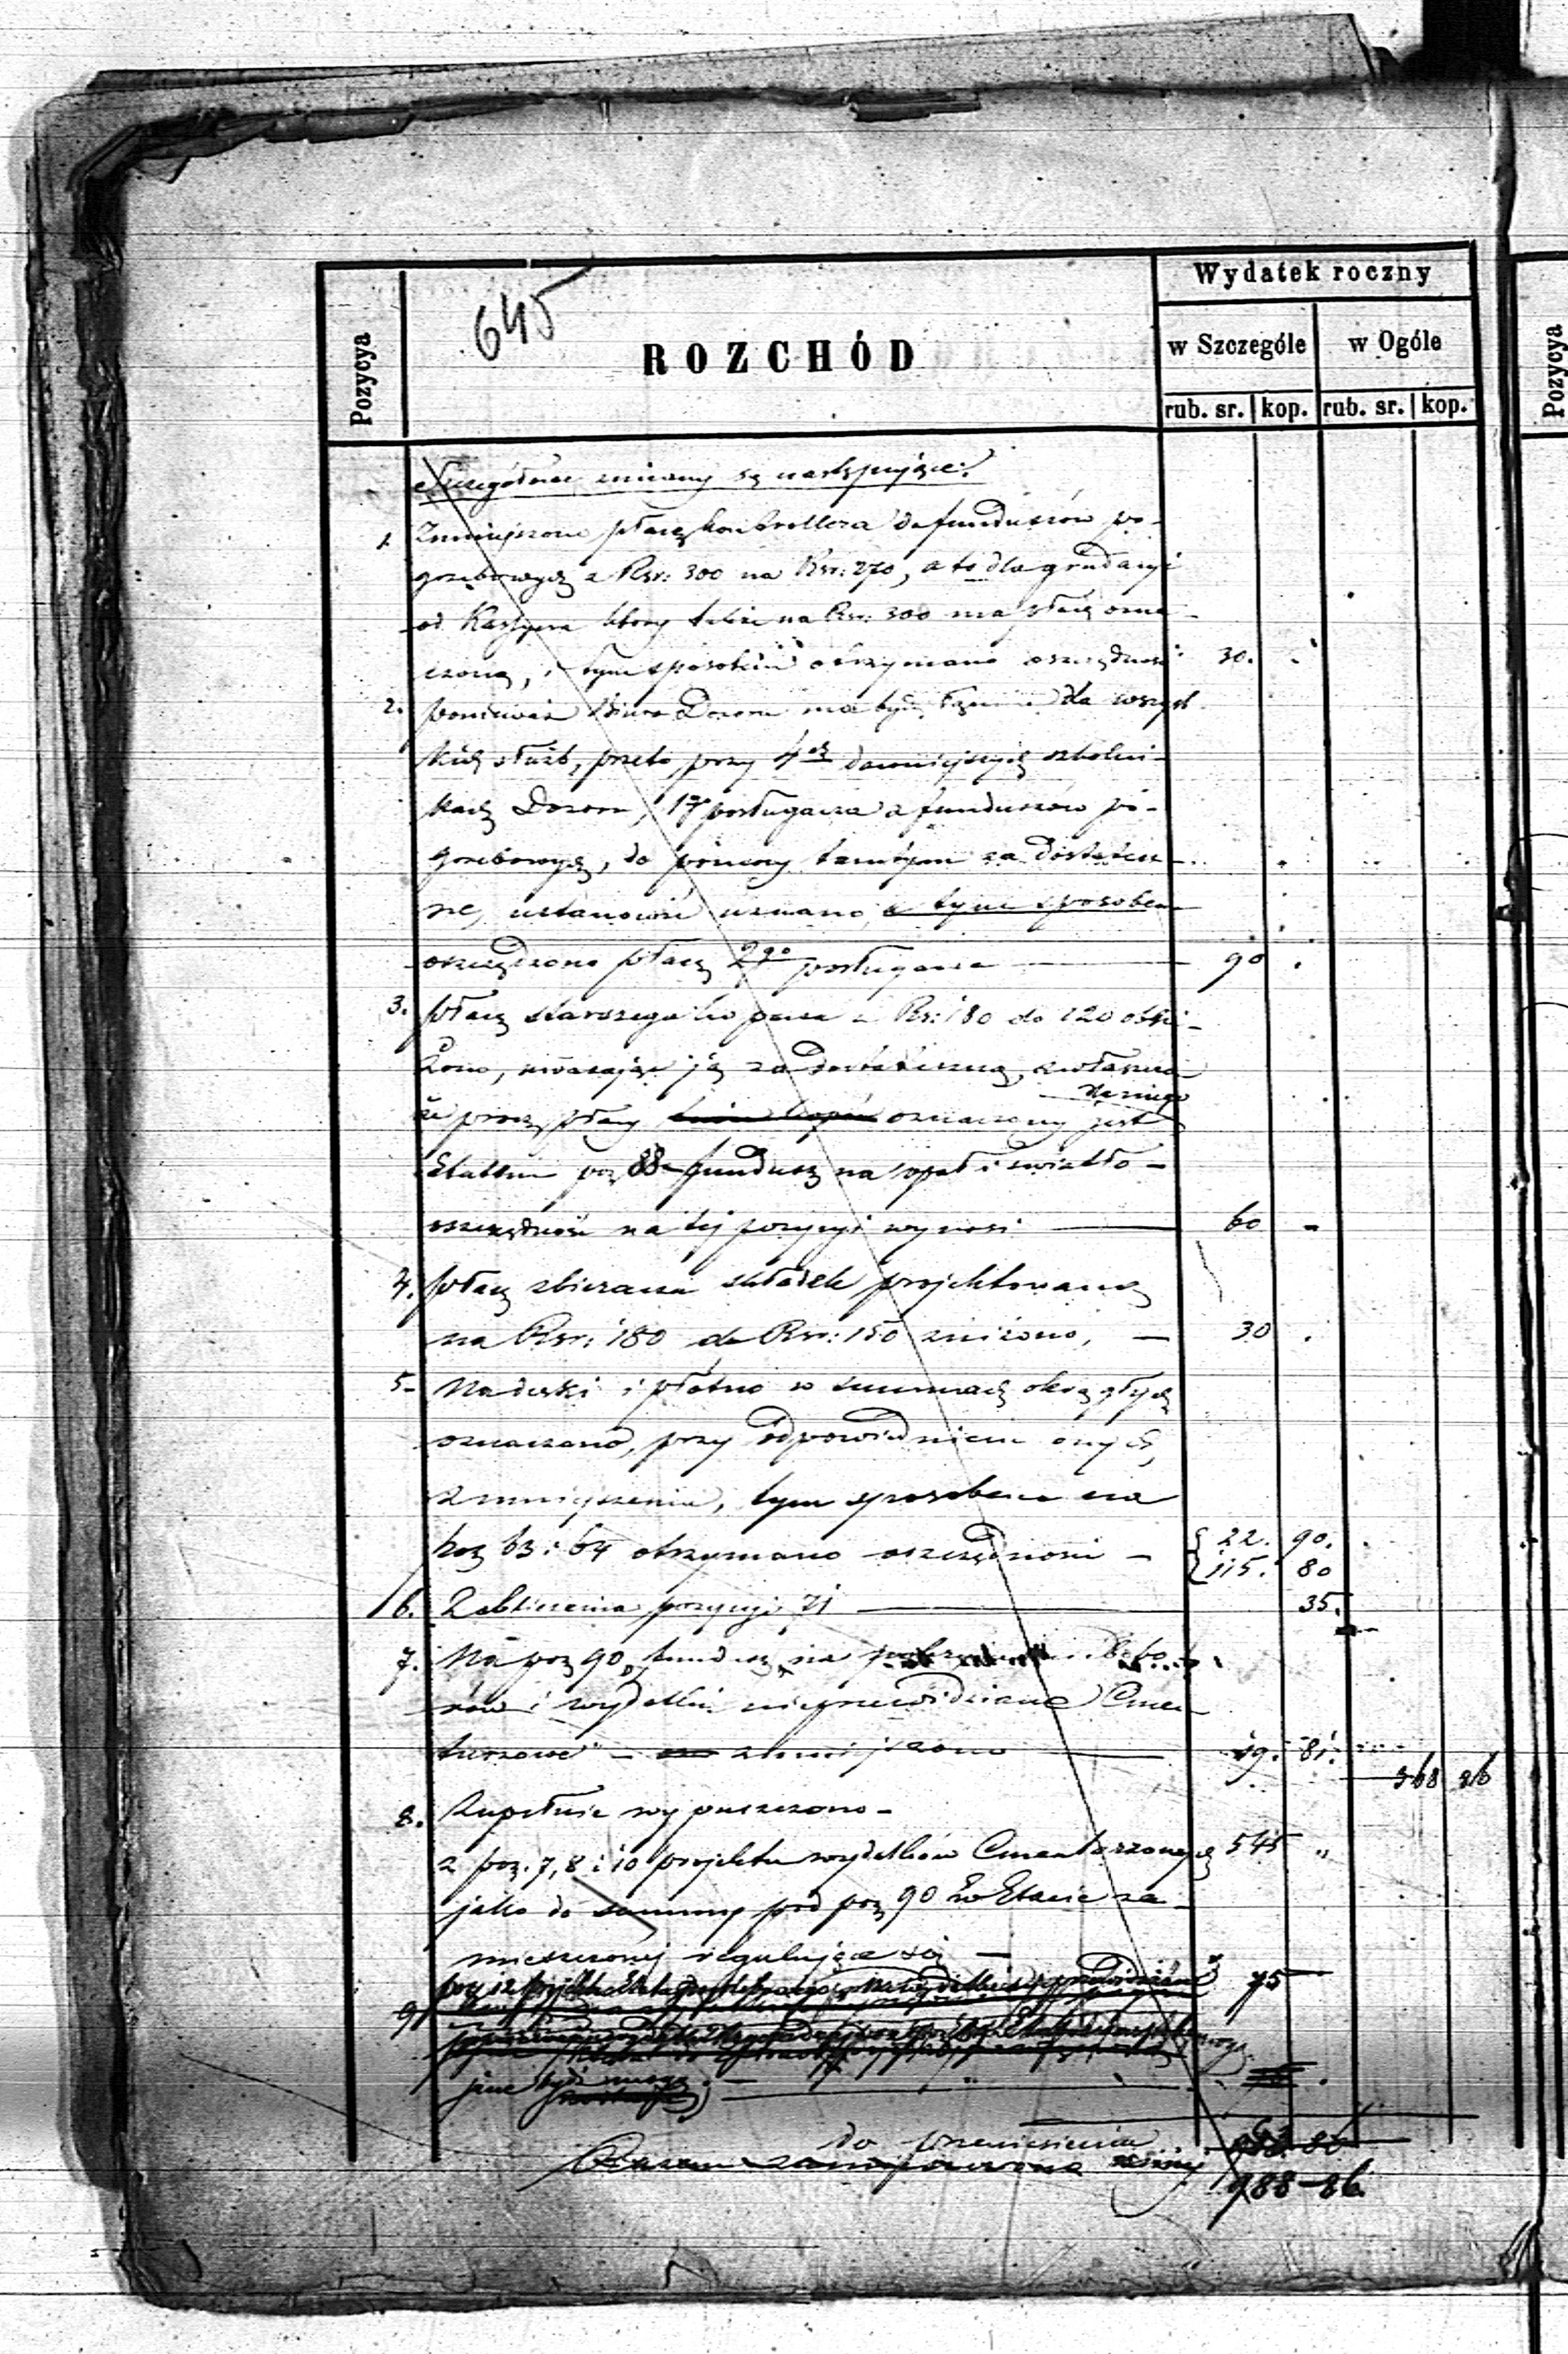 645
Pozycya
ROZCHÓD
Wydatek roczny
w Szczególe
w Ogóle
rub. sr. kop. rub. sr. kop.
Pozycya
Szczegółowe zmiany są następujące:
1. Zmniejszono płacę kontrollera funduszów po-
grzebowych z Rsr: 300 na Rsr: 270, a to dla gradacyi
od Kassyera który także na Rsr: 300 ma płacę ozna-
czoną, i tym sposobem otrzymano oszczędność 30.
2. Ponieważ Biuro Dozoru ma być łącznie dla wszyst
kich służb, przeto przy 4ech dawniejszych szkolni-
kach Dozoru, 1go posługacza z funduszów po-
grzebowych, do pomocy tamtym za dostatecz-
ne, ustanowić uznano, a tym sposobem
oszczędzono płacę 2go posługacza 90
3. Płacę starszego kopacza z Rsr: 180 do 120 obni-
żono, uważając ją za dostateczną, zwłaszcza
że prócz płacy oznaczony jest
dla niego
Etatem poz 88 fundusz na opał i światło -
oszczędność na tej pozycyi wynosi 60 -
4. Płacę zbieracza składek projektowaną
na Rsr: 180 do Rsr: 150 zniżono, - 30
5. Na deski i płótno w summach okrągłych
oznaczono, przy odpowiedniem onych,
zmniejszeniu, tym sposobem na
poz 63 i 64 otrzymano oszczędności - 22. 90.
115. 80
6. Z obliczenia pozycyi 71 35.
7. Na poz 90, fundusz na
rów i wydatki nieprzewidziane Cmen-
tarzowe" - zmniejszono 19. 81.
368 86
8. Zupełnie wypuszczono -
z poz. 7, 8 i 10 projektu wydatków Cmentarzowych 545 "
jako do summy pod poz 90 w Etacie za-
mieszczonej regulujące się -
75
9.
jine być mogą
do przeniesienia
988-86.